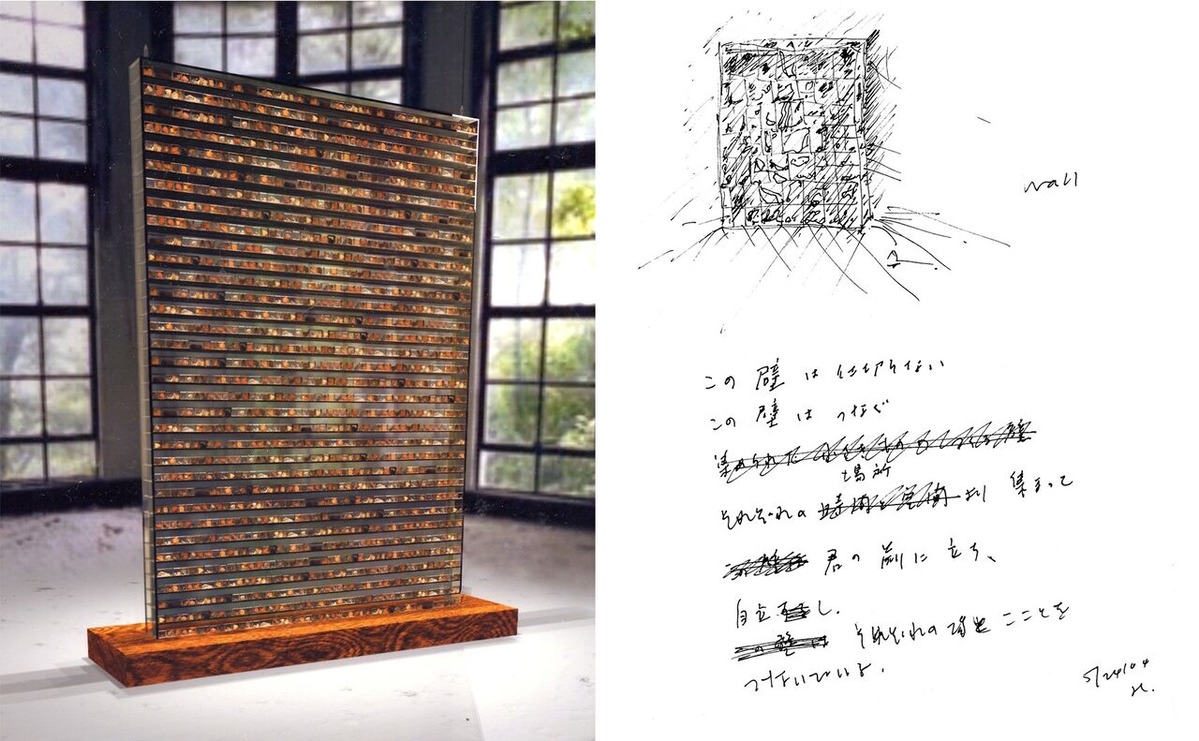 wall
この壁は仕切らない
この壁はつなぐ
場所
それぞれの より 集まって
君の前に立ち、
自立 し.
それぞれの ここことを
つないでいるよ.
5/24/04
H.